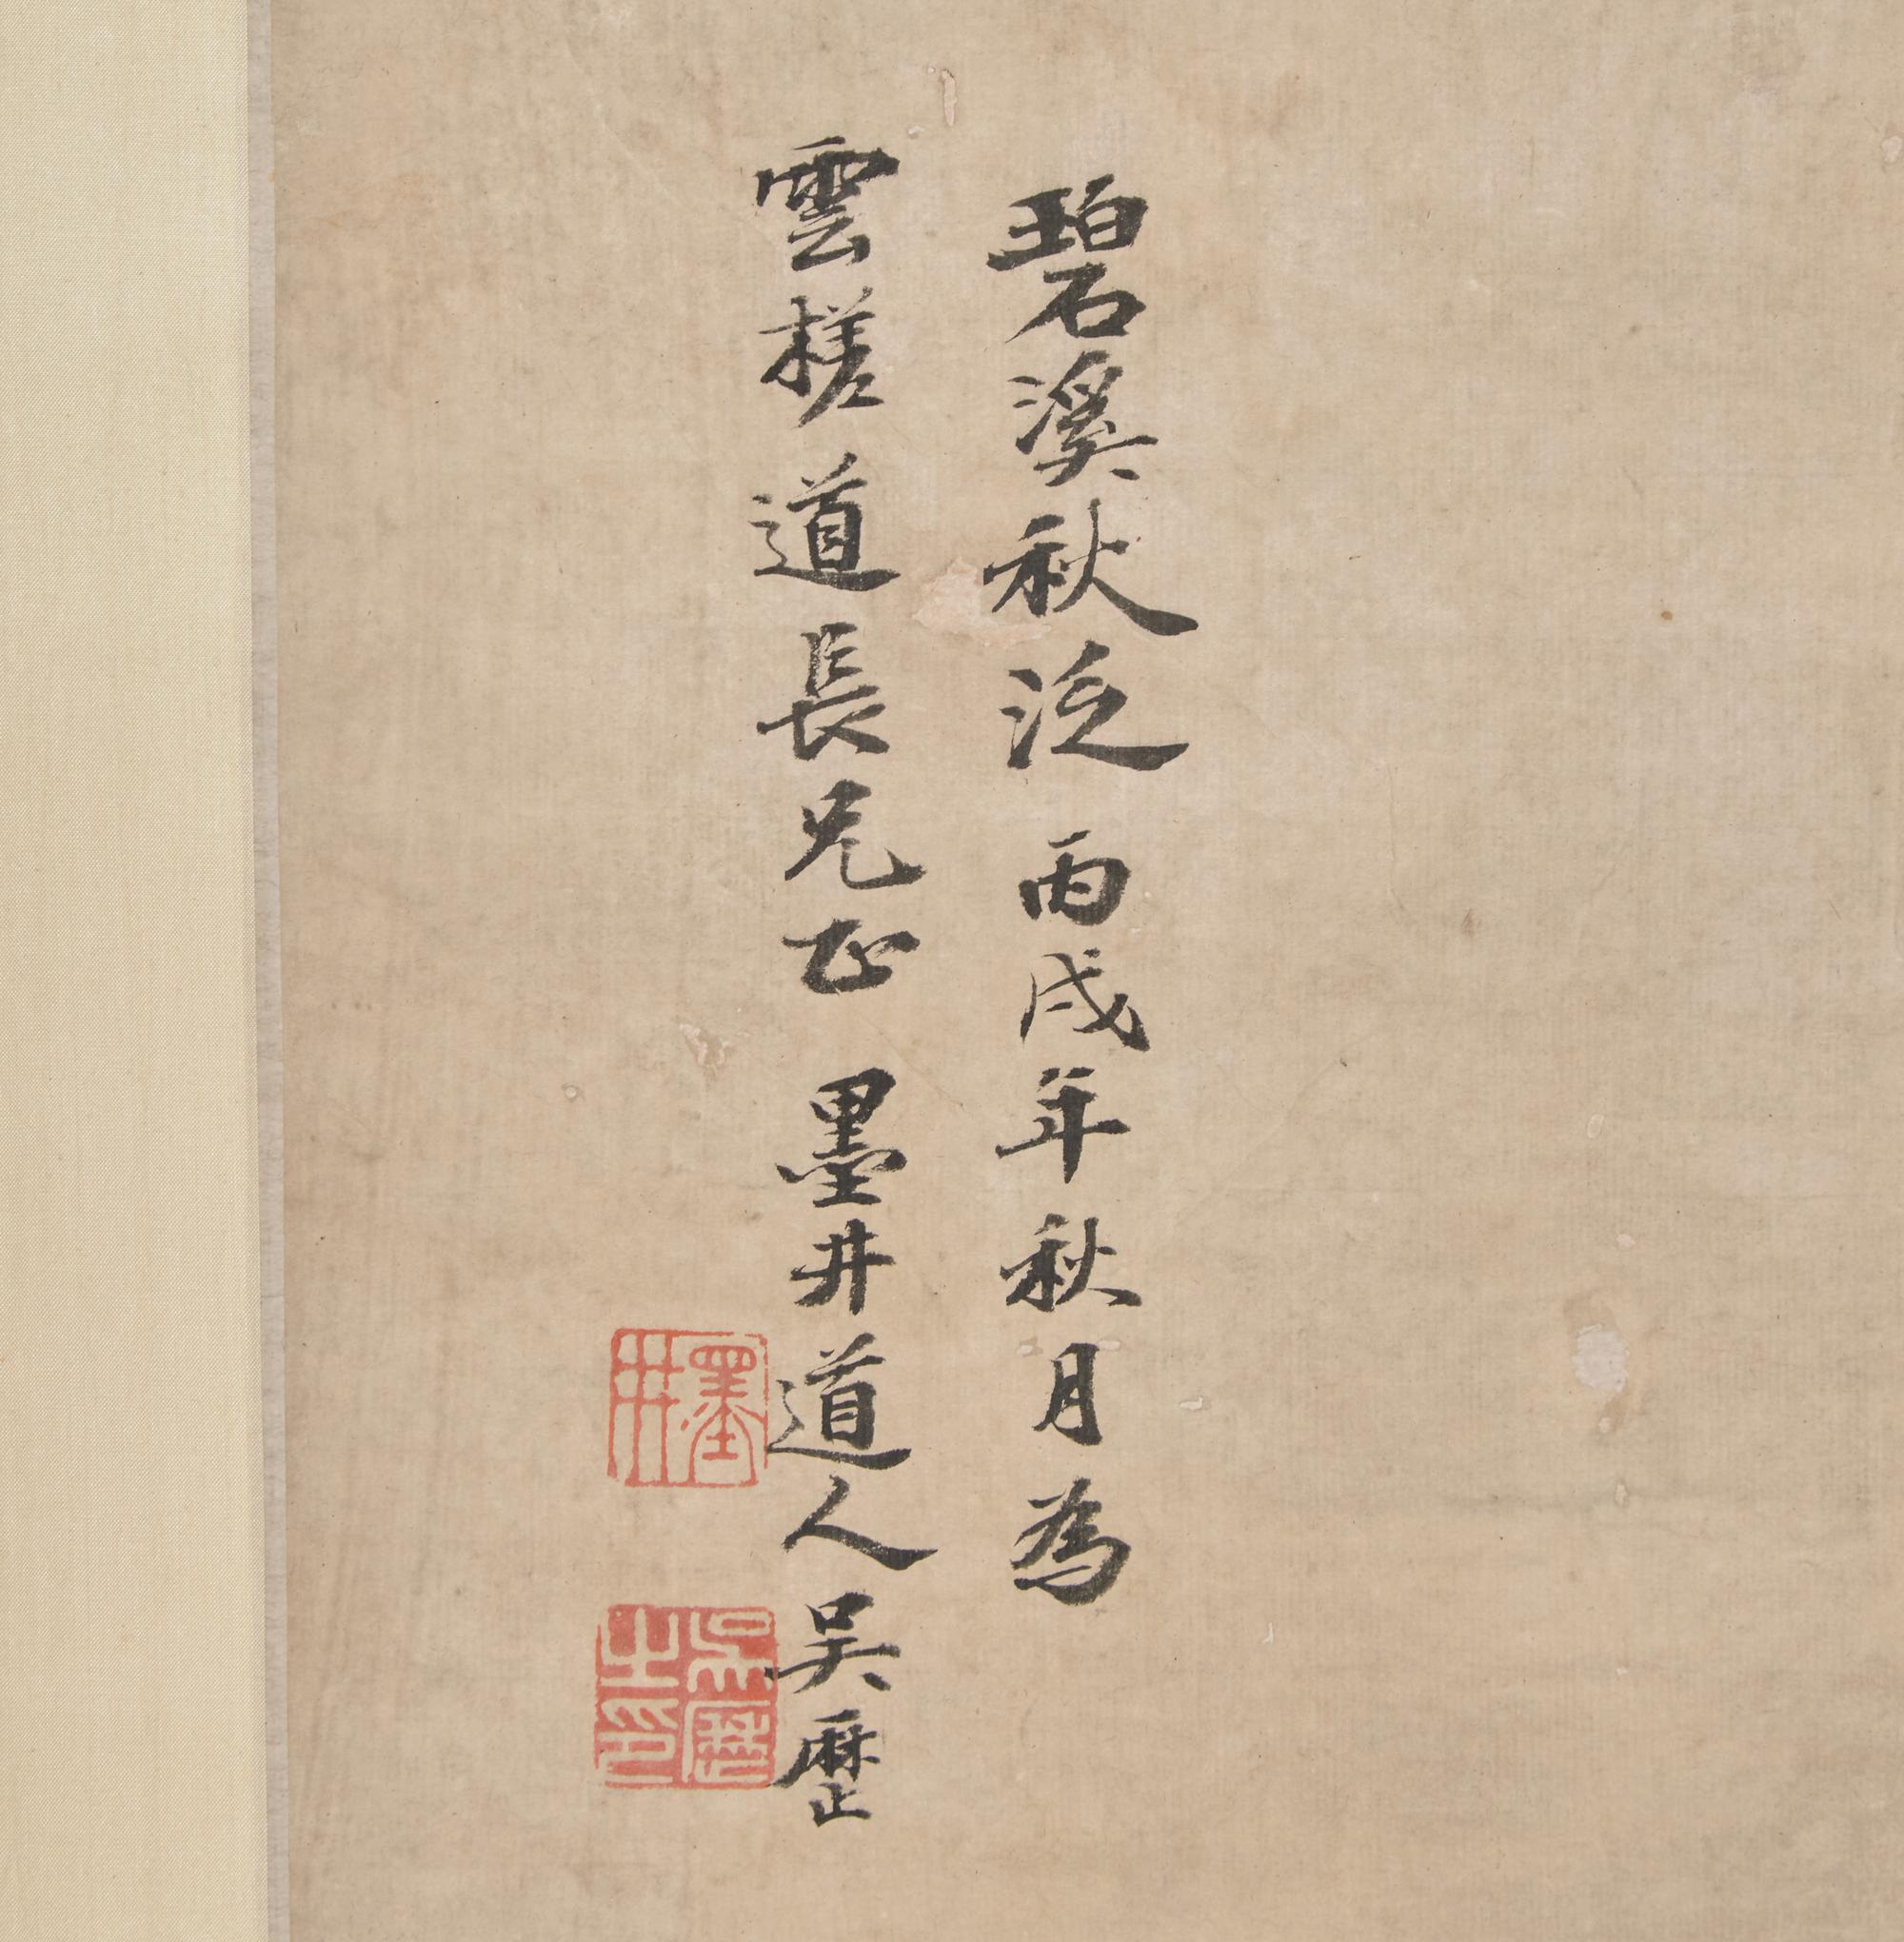 碧溪秋泛 丙戌年秋月為
雲槎道長兄正 墨井道人吳歷
墨井
吳歷之印